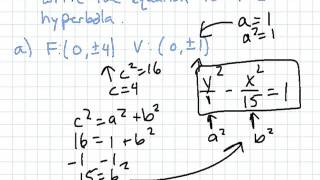 hyperbola.
a) F: (0, ±4) V: (0, ±1)
a = 1
a² = 1
c² = 16
c = 4
y²/1 - x²/15 = 1
a² b²
c² = a² + b²
16 = 1 + b²
-1 -1
15 = b²